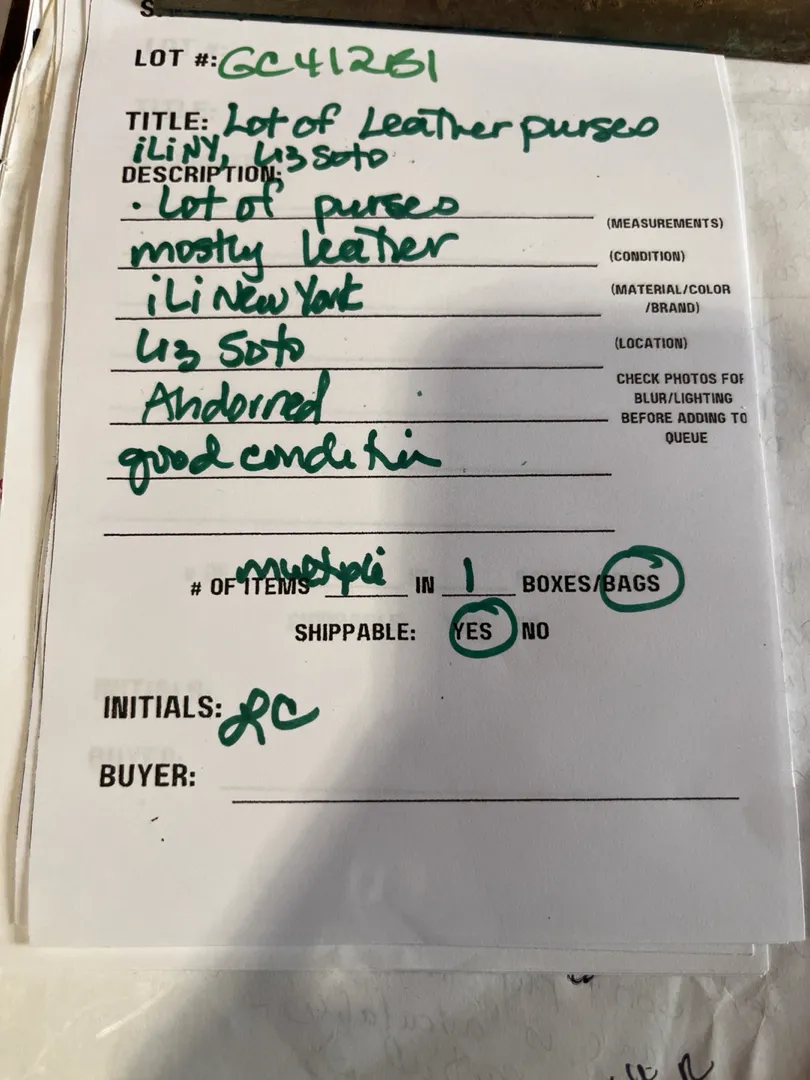 S
LOT #: GC412B1
TITLE: Lot of Leather purses
iLi NY, Liz Soto
DESCRIPTION:
· Lot of purses
(MEASUREMENTS)
mostly leather
(CONDITION)
iLi New York
(MATERIAL/COLOR
/BRAND)
Liz Soto
(LOCATION)
Ahdorned
CHECK PHOTOS FOR
BLUR/LIGHTING
BEFORE ADDING TO
QUEUE
good condition
# OF ITEMS multiple IN 1 BOXES/BAGS
SHIPPABLE: YES NO
INITIALS: LC
BUYER: